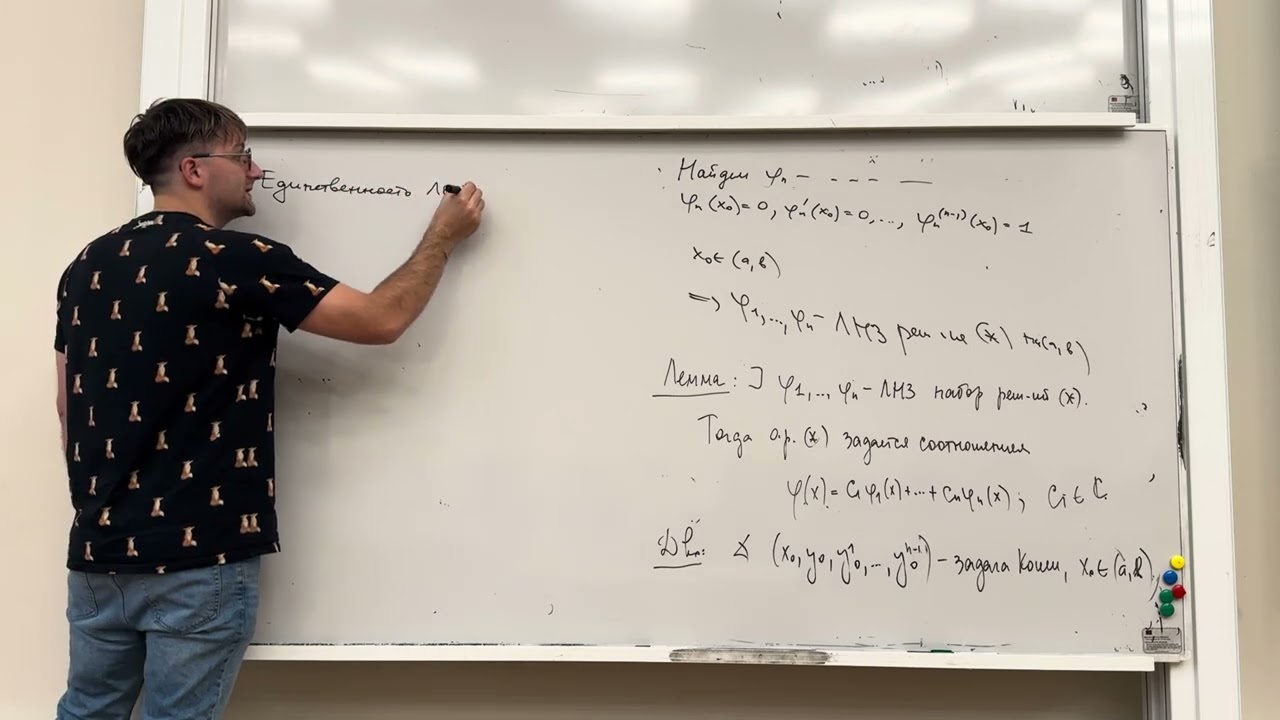 Единственность Ли
Найдем φₙ – – – – —
φₙ(x₀)=0, φₙ'(x₀)=0,..., φₙ⁽ⁿ⁻¹⁾(x₀)=1
x₀∈(a,b)
=> φ₁,...,φₙ – ЛНЗ реш-ие (*) на(a,b)
Лемма: ] φ1,..,φₙ – ЛНЗ набор реш-ий (*).
Тогда о.р. (*) задается соотношением
φ(x)=C₁φ₁(x)+...+Cₙφₙ(x); Cᵢ∈ℂ
(x₀,y₀,y₀¹,...,y₀ⁿ⁻¹) – задача Коши, x₀∈(a,b)